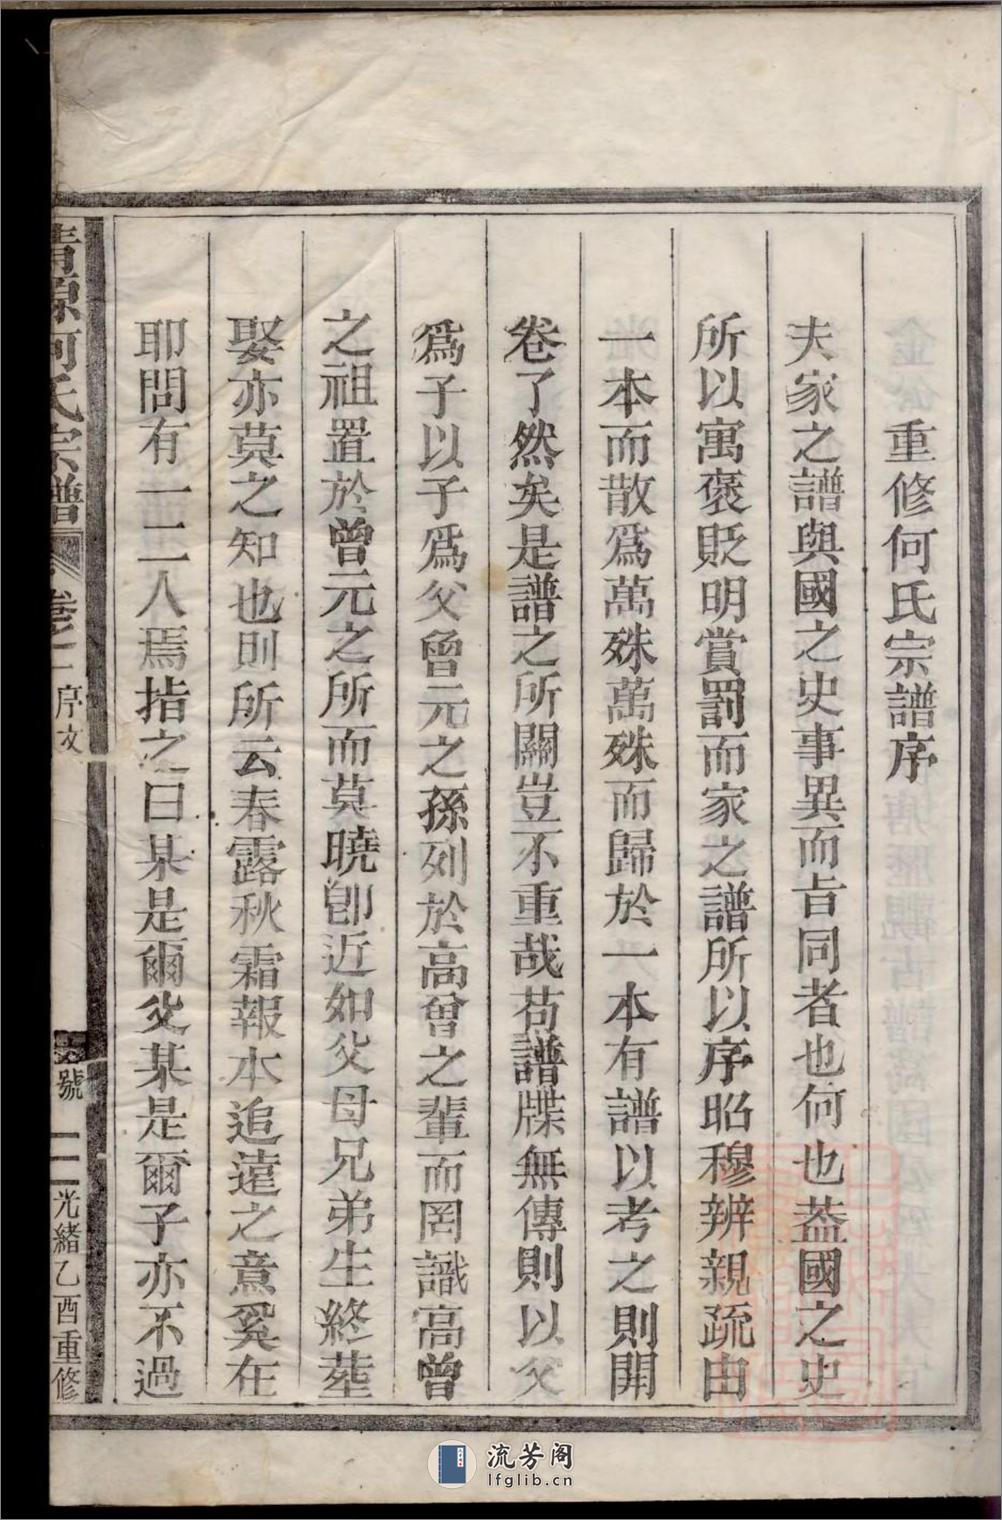 重修何氏宗譜序
夫家之譜與國之史事異而旨同者也何也葢國之史
所以寓褒貶明賞罰而家之譜所以序昭穆辨親疏由
一本而散爲萬殊萬殊而歸於一本有譜以考之則開
卷了然矣是譜之所關豈不重哉苟譜牒無傳則以父
爲子以子爲父曾元之孫列於高曾之輩而罔識高曾
之祖置於曾元之所而莫曉卽近如父母兄弟生終塟
娶亦莫之知也則所云春露秋霜報本追遠之意奚在
耶問有一二人焉指之曰某是爾父某是爾子亦不過
清源何氏宗譜 卷之一 序文 號 光緒乙酉重修
流芳阁
lfglib.cn